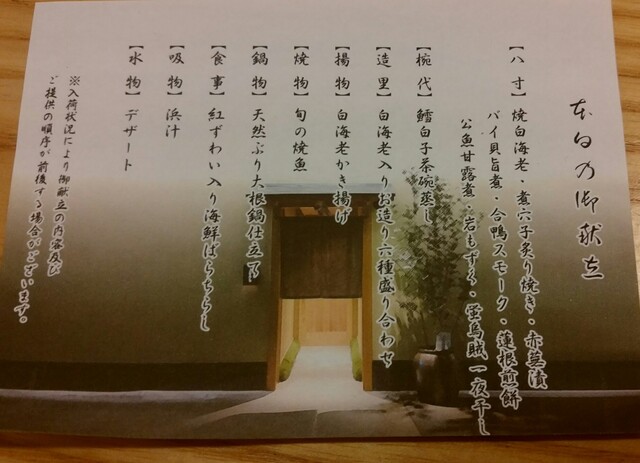 本日の御献立
【八寸】焼白海老・煮穴子炙り焼き・赤蕪漬
バイ貝旨煮・合鴨スモーク・蓮根煎餅
公魚甘露煮・岩もずく・蛍烏賊一夜干し
【椀代】鱈白子茶碗蒸し
【造里】白海老入りお造り六種盛り合わせ
【揚物】白海老かき揚げ
【焼物】旬の焼魚
【鍋物】天然ぶり大根鍋仕立て
【食事】紅ずわい入り海鮮ばらちらし
【吸物】浜汁
【水物】デザート
※入荷状況により御献立の内容及び
ご提供の順序が前後する場合がございます。